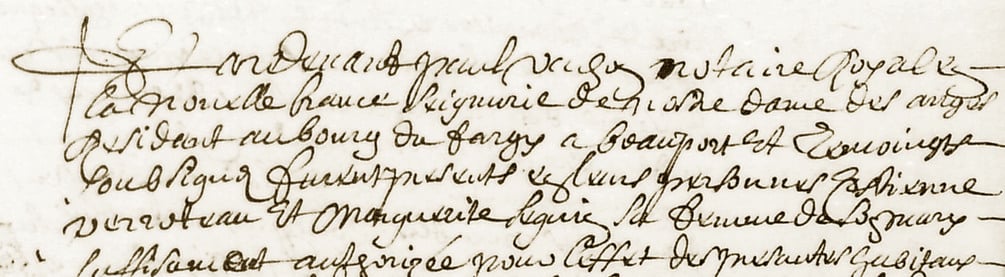 Pardevant paul vachon notaire Royal en
la Nouvelle france seigneurie de nostre dame des anges
Residant au bourg du fargy a beauport Et temoingts
soubsignez furent presents en leurs personnes Estienne
verroteau Et Marguerite seguin sa femme de luy
suffisament authorizée pour L'effet des presentes habitans